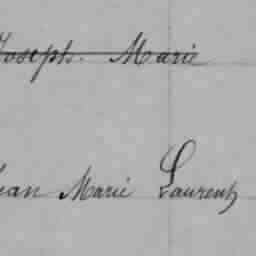 Joseph. Marie
Jean Marie Laurent